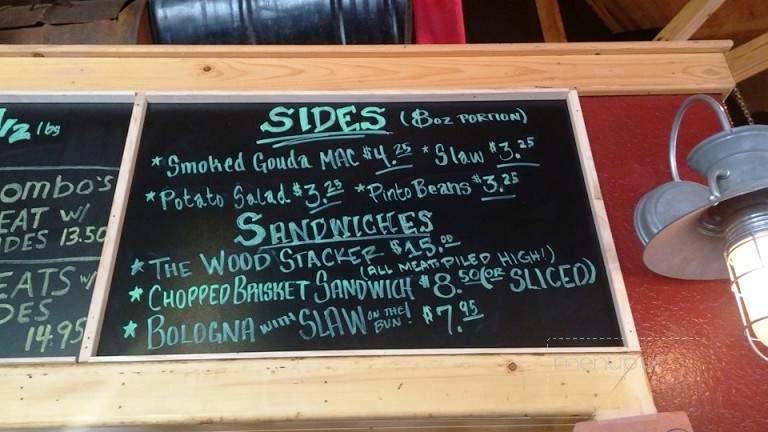 1/2 lbs
ombo's
EAT W/
IDES 13.50
EATS W/
DES
14.95
SIDES (8oz PORTION)
* Smoked Gouda MAC $4.25 * Slaw $3.25
* Potato Salad $3.25 * Pinto Beans $3.25
SANDWICHES
* THE WOOD STACKER $15.00
(ALL MEAT-PILED HIGH!)
* CHOPPED BRISKET SANDWICH $8.50 (OR SLICED)
* BOLOGNA WITH SLAW ON THE BUN! $7.95